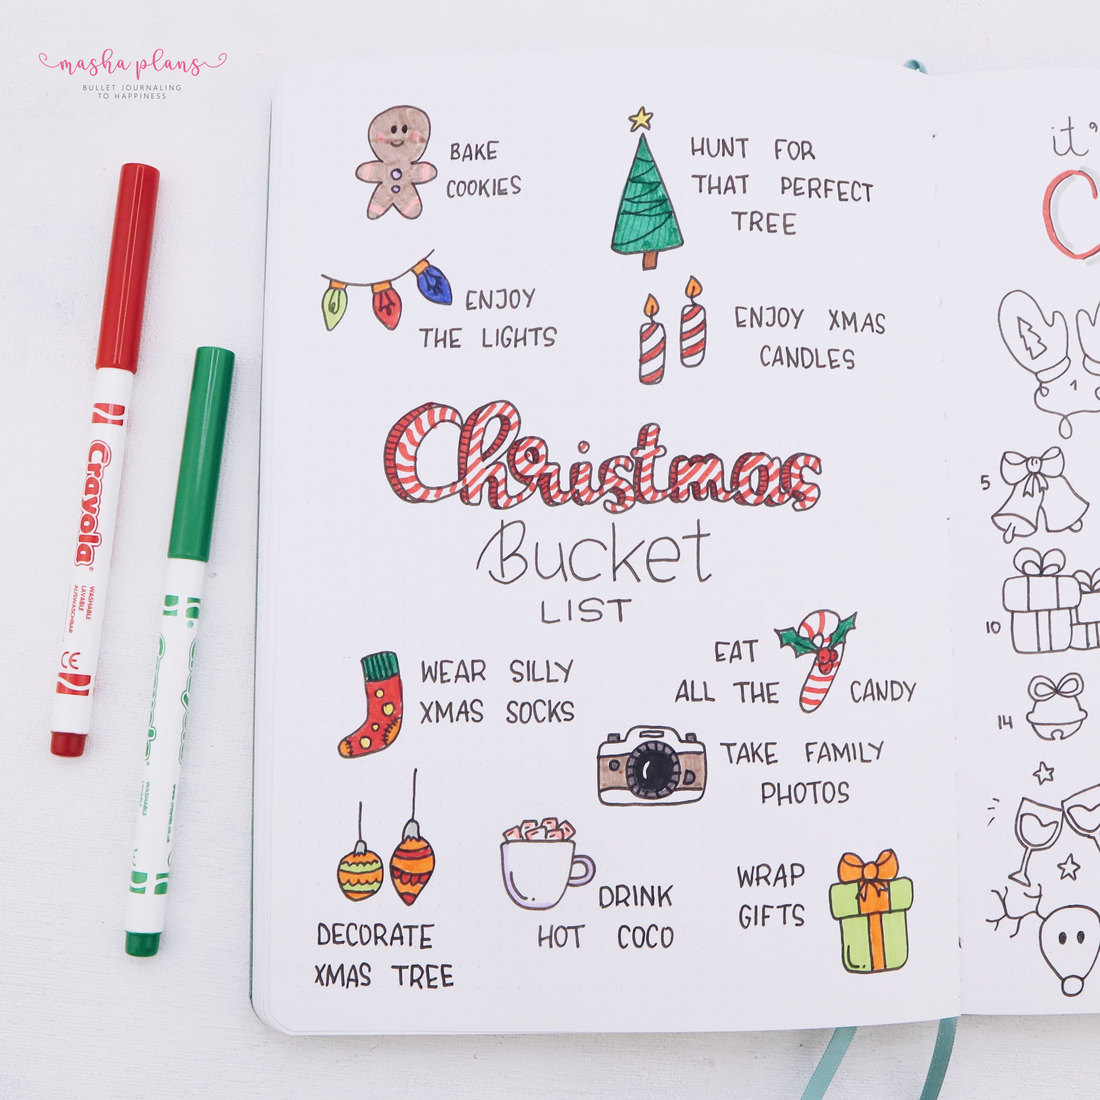 masha plans
BULLET JOURNALING
TO HAPPINESS
BAKE
COOKIES
HUNT FOR
THAT PERFECT
TREE
ENJOY
THE LIGHTS
ENJOY XMAS
CANDLES
Christmas
Bucket
LIST
WEAR SILLY
XMAS SOCKS
EAT
ALL THE CANDY
TAKE FAMILY
PHOTOS
DECORATE
XMAS TREE
DRINK
HOT COCO
WRAP
GIFTS
it's
C
5
10
14
Crayola
WASHABLE
LAVABLE
AUSWASCHBAR
CE
Crayola
WASHABLE